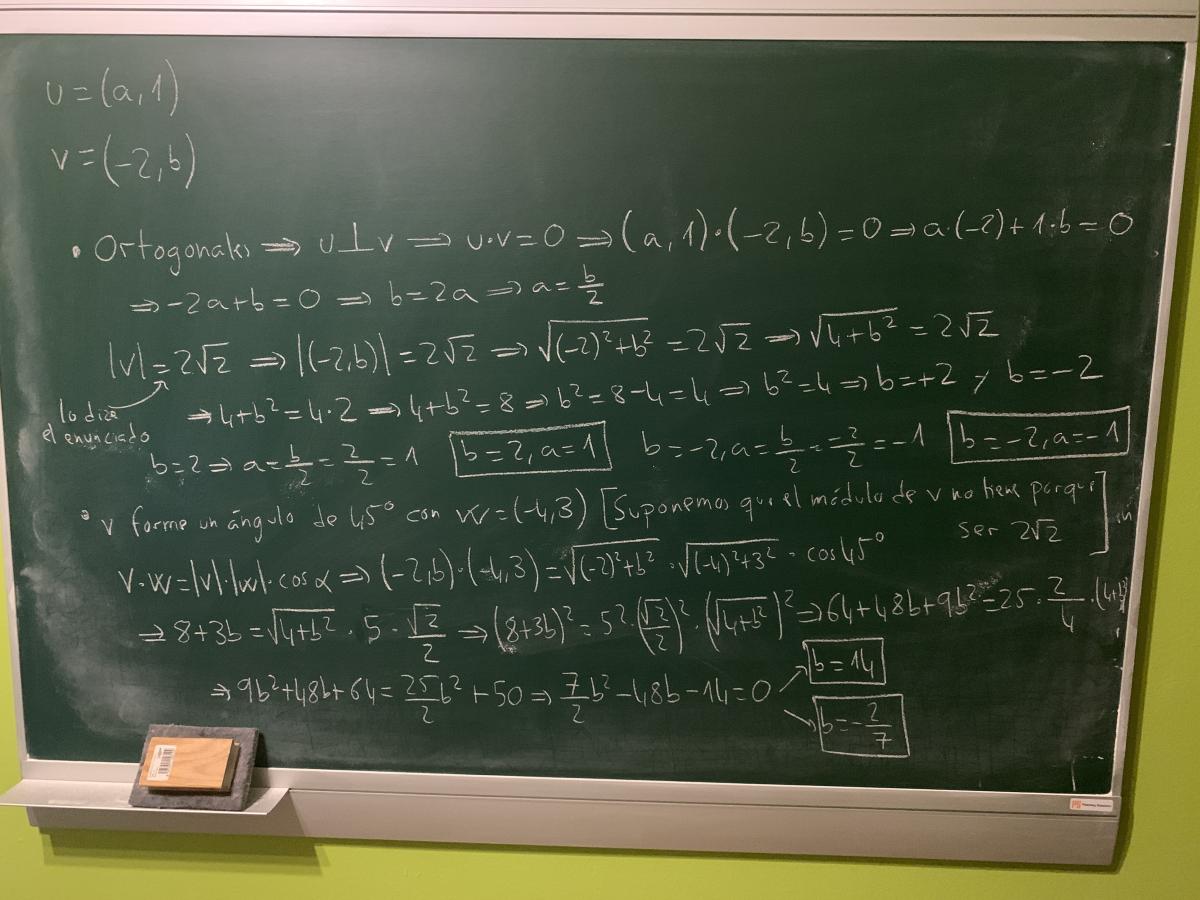 u=(a,1)
v=(-2,b)
• Ortogonales ⇒ u⊥v ⇒ u·v=0 ⇒ (a,1)·(-2,b)=0 ⇒ a·(-2)+1·b=0
⇒ -2a+b=0 ⇒ b=2a ⇒ a=b/2
|v|=2√2 ⇒ |(-2,b)|=2√2 ⇒ √((-2)²+b²)=2√2 ⇒ √(4+b²)=2√2
lo dice
el enunciado
⇒ 4+b²=4·2 ⇒ 4+b²=8 ⇒ b²=8-4=4 ⇒ b²=4 ⇒ b=+2 y b=-2
b=2 ⇒ a=b/2=2/2=1 b=2, a=1 b=-2, a=b/2=-2/2=-1 b=-2, a=-1
• v forme un ángulo de 45° con w=(-4,3) [Suponemos que el módulo de v no tiene porque
ser 2√2]
v·w=|v|·|w|·cosα ⇒ (-2,b)·(-4,3)=√((-2)²+b²)·√((-4)²+3²)·cos45°
⇒ 8+3b=√(4+b²)·5·√2/2 ⇒ (8+3b)²=5²·(√2/2)²·(√(4+b²))² ⇒ 64+48b+9b²=25·2/4·(4+b²)
⇒ 9b²+48b+64=25/2b²+50 ⇒ 7/2b²-48b-14=0
b=14
b=-2/7